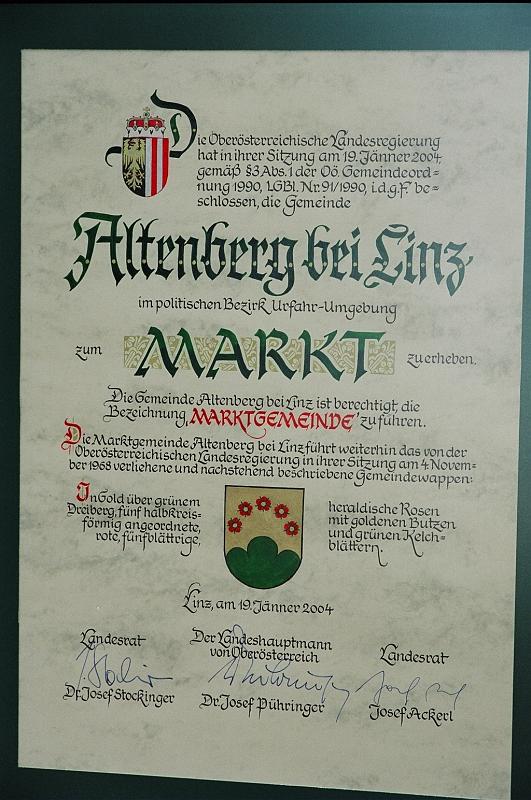 Die Oberösterreichische Landesregierung
hat in ihrer Sitzung am 19. Jänner 2004
gemäß §3 Abs. 1 der Oö. Gemeindeord-
nung 1990, LGBl. Nr. 91/1990, i.d.g.F. be-
schlossen, die Gemeinde
Altenberg bei Linz
im politischen Bezirk Urfahr-Umgebung
zum MARKT zu erheben.
Die Gemeinde Altenberg bei Linz ist berechtigt, die
Bezeichnung „MARKTGEMEINDE" zu führen.
Die Marktgemeinde Altenberg bei Linz führt weiterhin das von der
Oberösterreichischen Landesregierung in ihrer Sitzung am 4. Novem-
ber 1968 verliehene und nachstehend beschriebene Gemeindewappen:
In Gold über grünem
Dreiberg, fünf halbkreis-
förmig angeordnete,
rote, fünfblättrige,
heraldische Rosen
mit goldenen Butzen
und grünen Kelch-
blättern.
Linz, am 19. Jänner 2004
Landesrat
Dr. Josef Stockinger
Der Landeshauptmann
von Oberösterreich
Dr. Josef Pühringer
Landesrat
Josef Ackerl